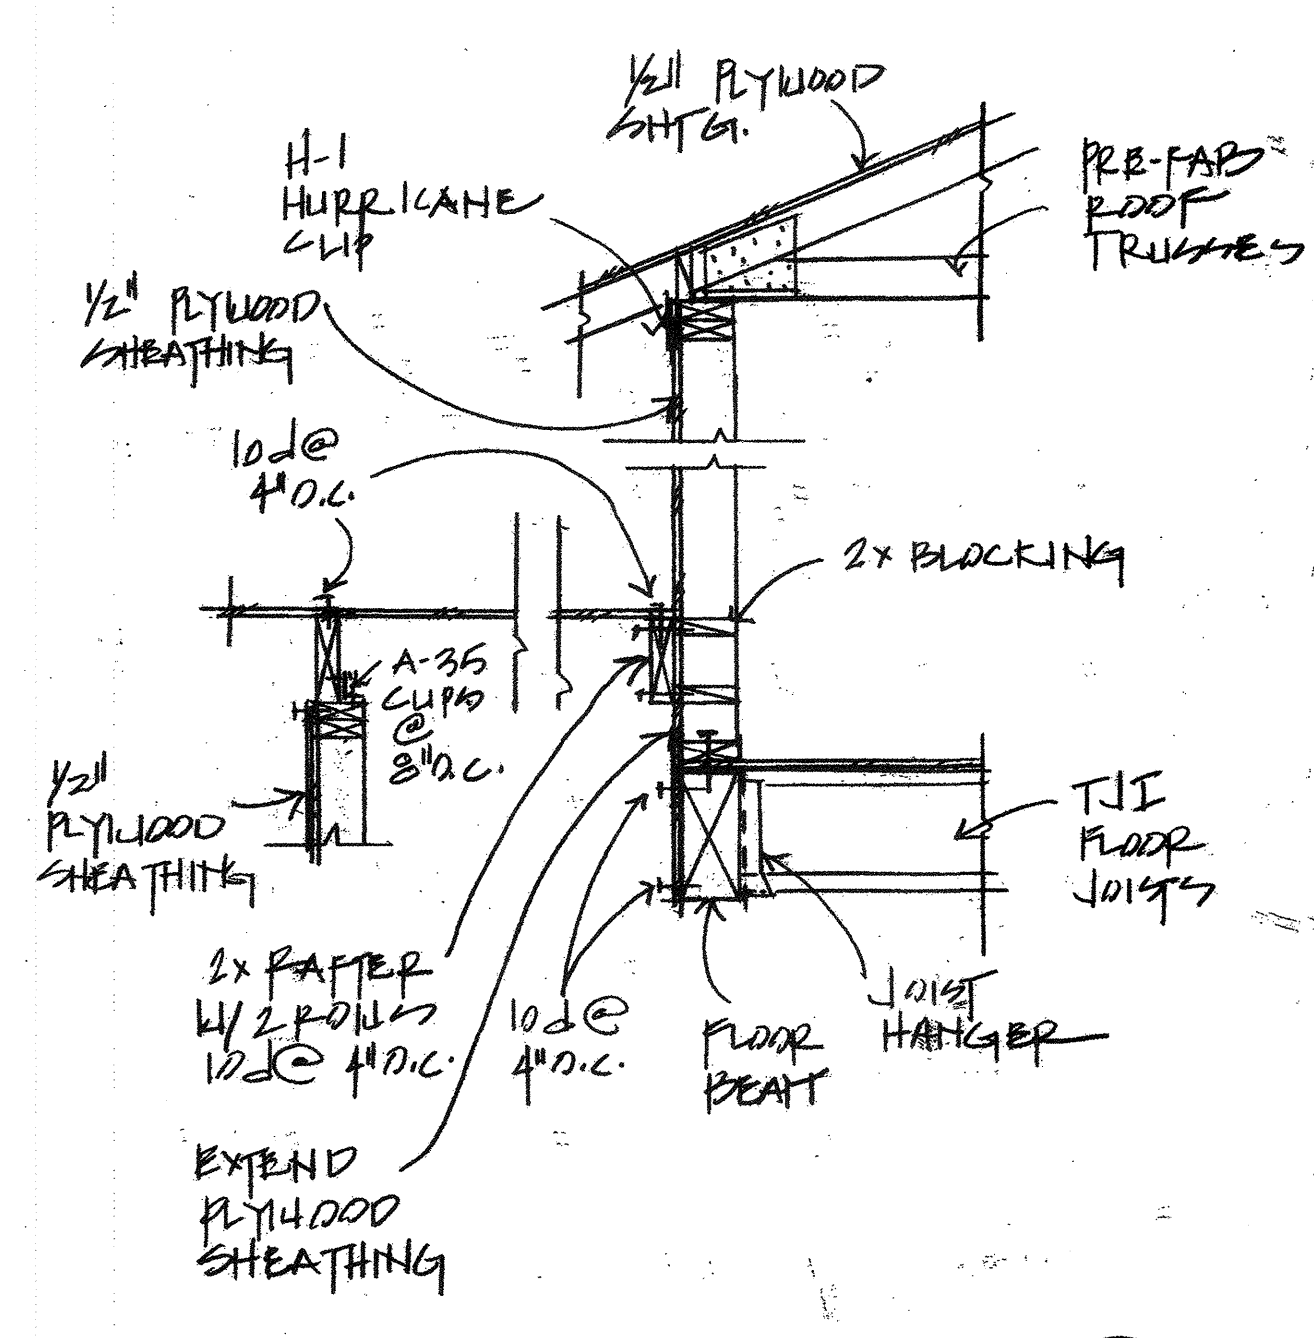 1/2" PLYWOOD
SHTG.
H-1
HURRICANE
CLIP
PRE-FAB
ROOF
TRUSSES
1/2" PLYWOOD
SHEATHING
10d @
4" O.C.
2x BLOCKING
A-35
CLIPS
@
8" O.C.
1/2"
PLYWOOD
SHEATHING
TJI
FLOOR
JOISTS
2x RAFTER
W/ 2 ROWS
10d @ 4" O.C.
10d @
4" O.C.
FLOOR
BEAM
JOIST
HANGER
EXTEND
PLYWOOD
SHEATHING